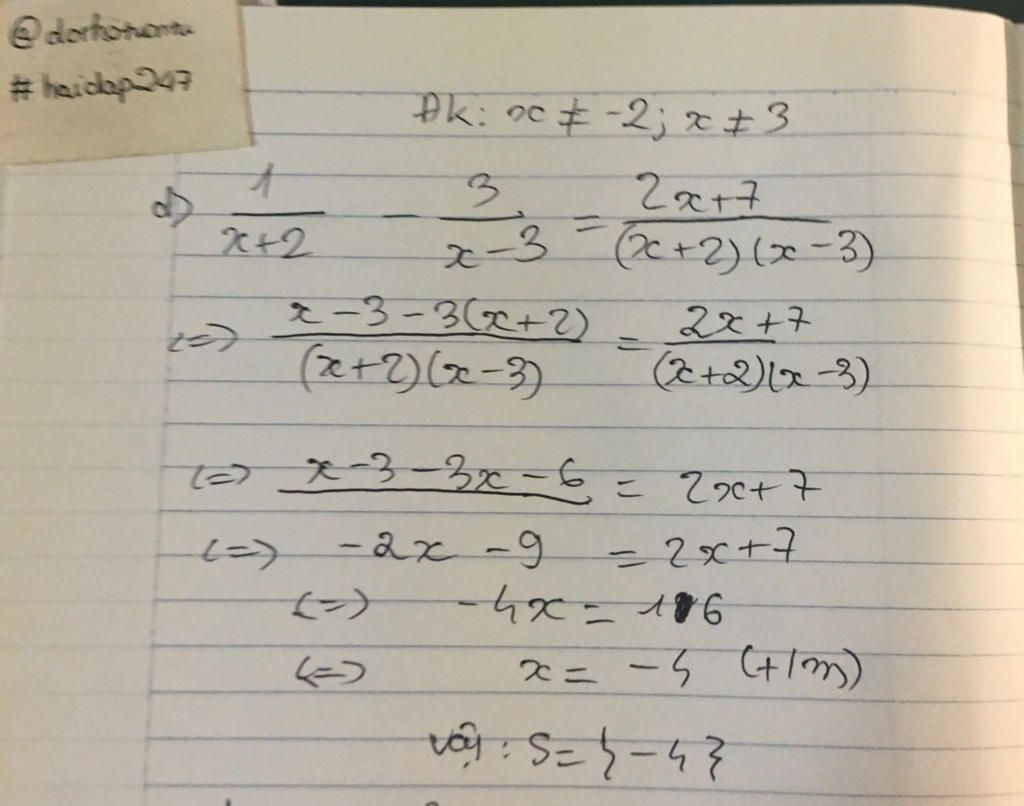 @dorhotuontu
#hoidap247
Đk: x ≠ -2; x ≠ 3
d) 1/(x+2) - 3/(x-3) = (2x+7)/((x+2)(x-3))
<=> (x-3-3(x+2))/((x+2)(x-3)) = (2x+7)/((x+2)(x-3))
<=> x-3-3x-6 = 2x+7
<=> -2x-9 = 2x+7
<=> -4x = 16
<=> x = -4 (t/m)
Vậy: S={-4}